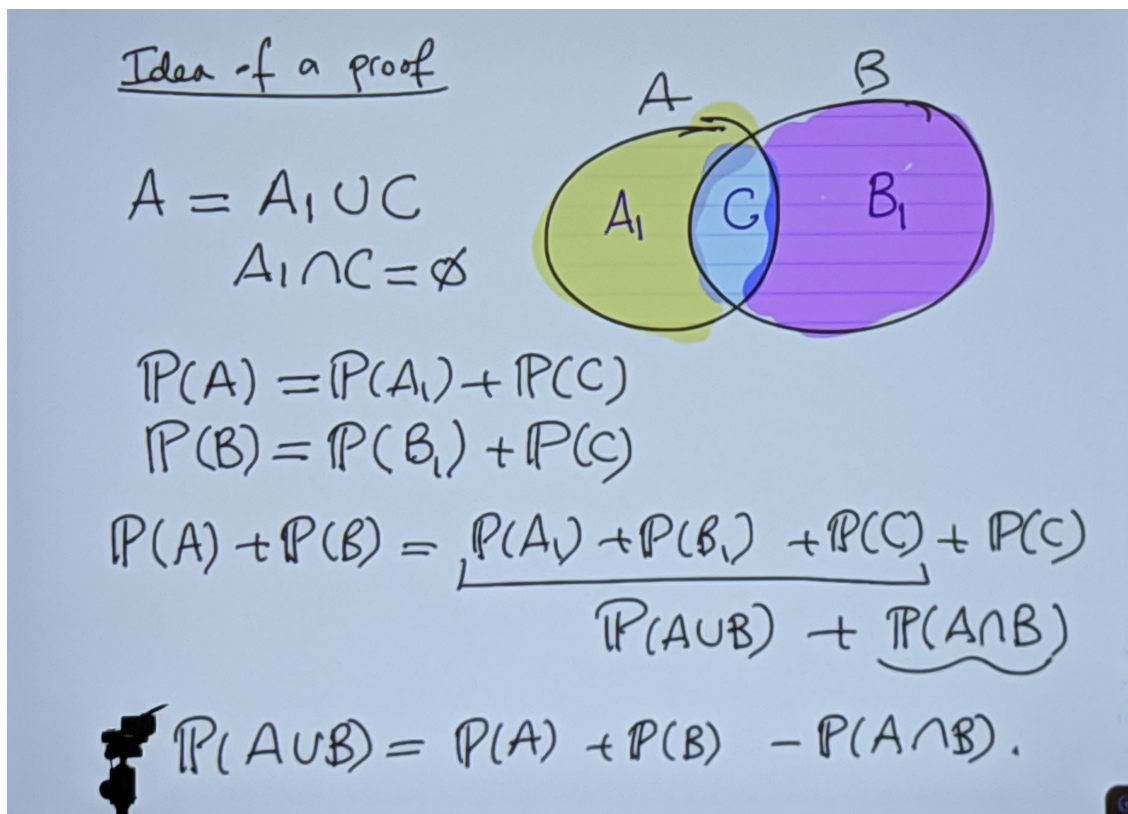 Idea of a proof
A B
A₁ C B₁
A = A₁ ∪ C
A₁ ∩ C = ∅
ℙ(A) = ℙ(A₁) + ℙ(C)
ℙ(B) = ℙ(B₁) + ℙ(C)
ℙ(A) + ℙ(B) = ℙ(A₁) + ℙ(B₁) + ℙ(C) + ℙ(C)
ℙ(A∪B) + ℙ(A∩B)
ℙ(A∪B) = ℙ(A) + ℙ(B) − ℙ(A∩B).